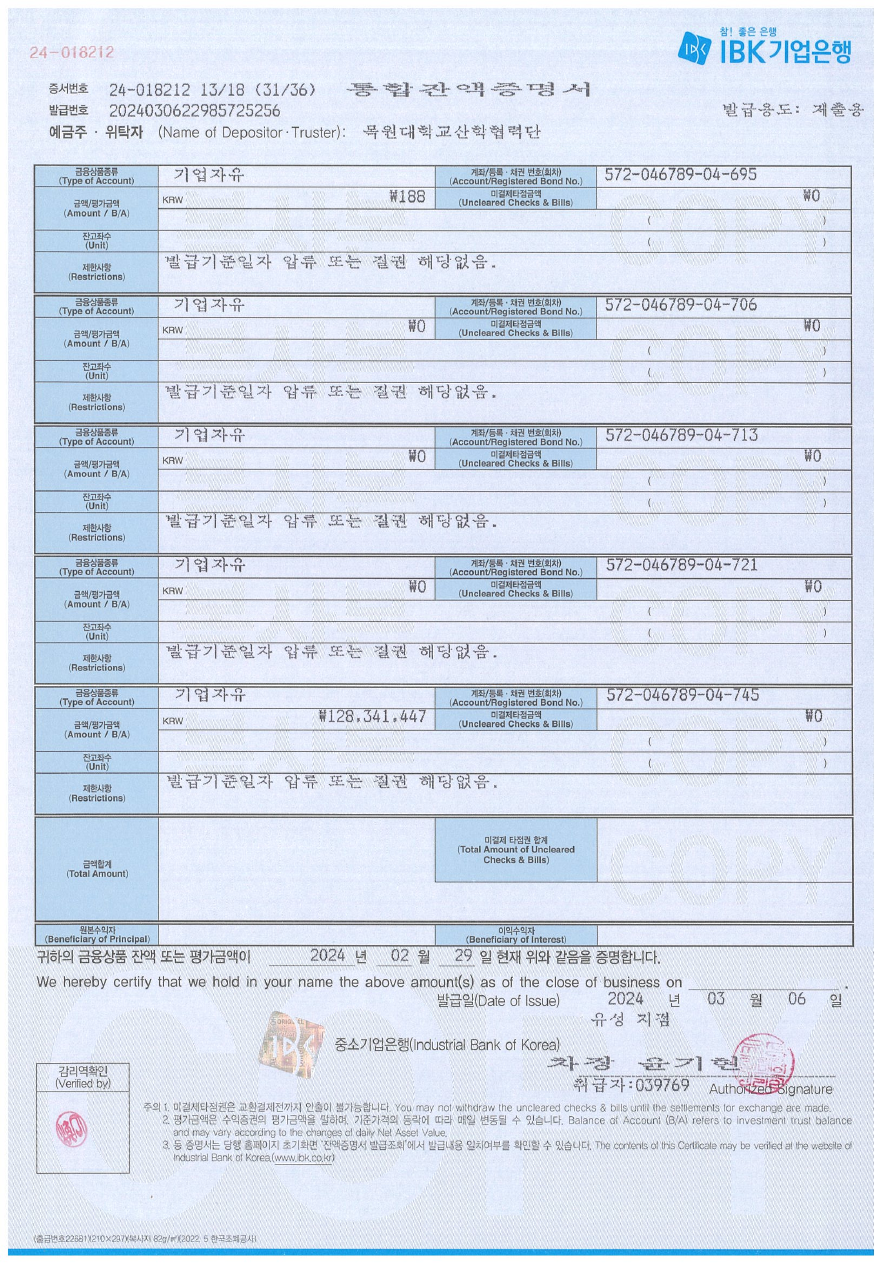 24-018212
참! 좋은 은행
IBK 기업은행
증서번호 24-018212 13/18 (31/36) 통합잔액증명서
발급번호 2024030622985725256 발급용도: 제출용
예금주 · 위탁자 (Name of Depositor · Truster): 목원대학교산학협력단
금융상품종류 (Type of Account) 기업자유 계좌/등록 · 채권 번호(회차) (Account/Registered Bond No.) 572-046789-04-695
금액/평가금액 (Amount / B/A) KRW ₩188 미결제타점금액 (Uncleared Checks & Bills) ₩0
( )
잔고좌수 (Unit) ( )
제한사항 (Restrictions) 발급기준일자 압류 또는 질권 해당없음.
금융상품종류 (Type of Account) 기업자유 계좌/등록 · 채권 번호(회차) (Account/Registered Bond No.) 572-046789-04-706
금액/평가금액 (Amount / B/A) KRW ₩0 미결제타점금액 (Uncleared Checks & Bills) ₩0
( )
잔고좌수 (Unit) ( )
제한사항 (Restrictions) 발급기준일자 압류 또는 질권 해당없음.
금융상품종류 (Type of Account) 기업자유 계좌/등록 · 채권 번호(회차) (Account/Registered Bond No.) 572-046789-04-713
금액/평가금액 (Amount / B/A) KRW ₩0 미결제타점금액 (Uncleared Checks & Bills) ₩0
( )
잔고좌수 (Unit) ( )
제한사항 (Restrictions) 발급기준일자 압류 또는 질권 해당없음.
금융상품종류 (Type of Account) 기업자유 계좌/등록 · 채권 번호(회차) (Account/Registered Bond No.) 572-046789-04-721
금액/평가금액 (Amount / B/A) KRW ₩0 미결제타점금액 (Uncleared Checks & Bills) ₩0
( )
잔고좌수 (Unit) ( )
제한사항 (Restrictions) 발급기준일자 압류 또는 질권 해당없음.
금융상품종류 (Type of Account) 기업자유 계좌/등록 · 채권 번호(회차) (Account/Registered Bond No.) 572-046789-04-745
금액/평가금액 (Amount / B/A) KRW ₩128,341,447 미결제타점금액 (Uncleared Checks & Bills) ₩0
( )
잔고좌수 (Unit) ( )
제한사항 (Restrictions) 발급기준일자 압류 또는 질권 해당없음.
금액합계 (Total Amount) 미결제 타점권 합계 (Total Amount of Uncleared Checks & Bills)
COPY
원본수익자 (Beneficiary of Principal) 이익수익자 (Beneficiary of Interest)
귀하의 금융상품 잔액 또는 평가금액이 2024 년 02 월 29 일 현재 위와 같음을 증명합니다.
We hereby certify that we hold in your name the above amount(s) as of the close of business on .
발급일(Date of Issue) 2024 년 03 월 06 일
유성 지점
IBK
중소기업은행(Industrial Bank of Korea)
차장 윤기현
취급자:039769 Authorized Signature
감리역확인
(Verified by)
주의 1. 미결제타점권은 교환결제전까지 인출이 불가능합니다. You may not withdraw the uncleared checks & bills until the settlements for exchange are made.
2. 평가금액은 수익증권의 평가금액을 말하며, 기준가격의 등락에 따라 매일 변동될 수 있습니다. Balance of Account (B/A) refers to investment trust balance
and may vary according to the changes of daily Net Asset Value.
3. 동 증명서는 당행 홈페이지 초기화면 '잔액증명서 발급조회'에서 발급내용 일치여부를 확인할 수 있습니다. The contents of this Certificate may be verified at the website of
Industrial Bank of Korea.(www.ibk.co.kr)
COPY
(출급번호22681)(210×297)(복사지 82g/㎡)(2022. 5 한국조폐공사)